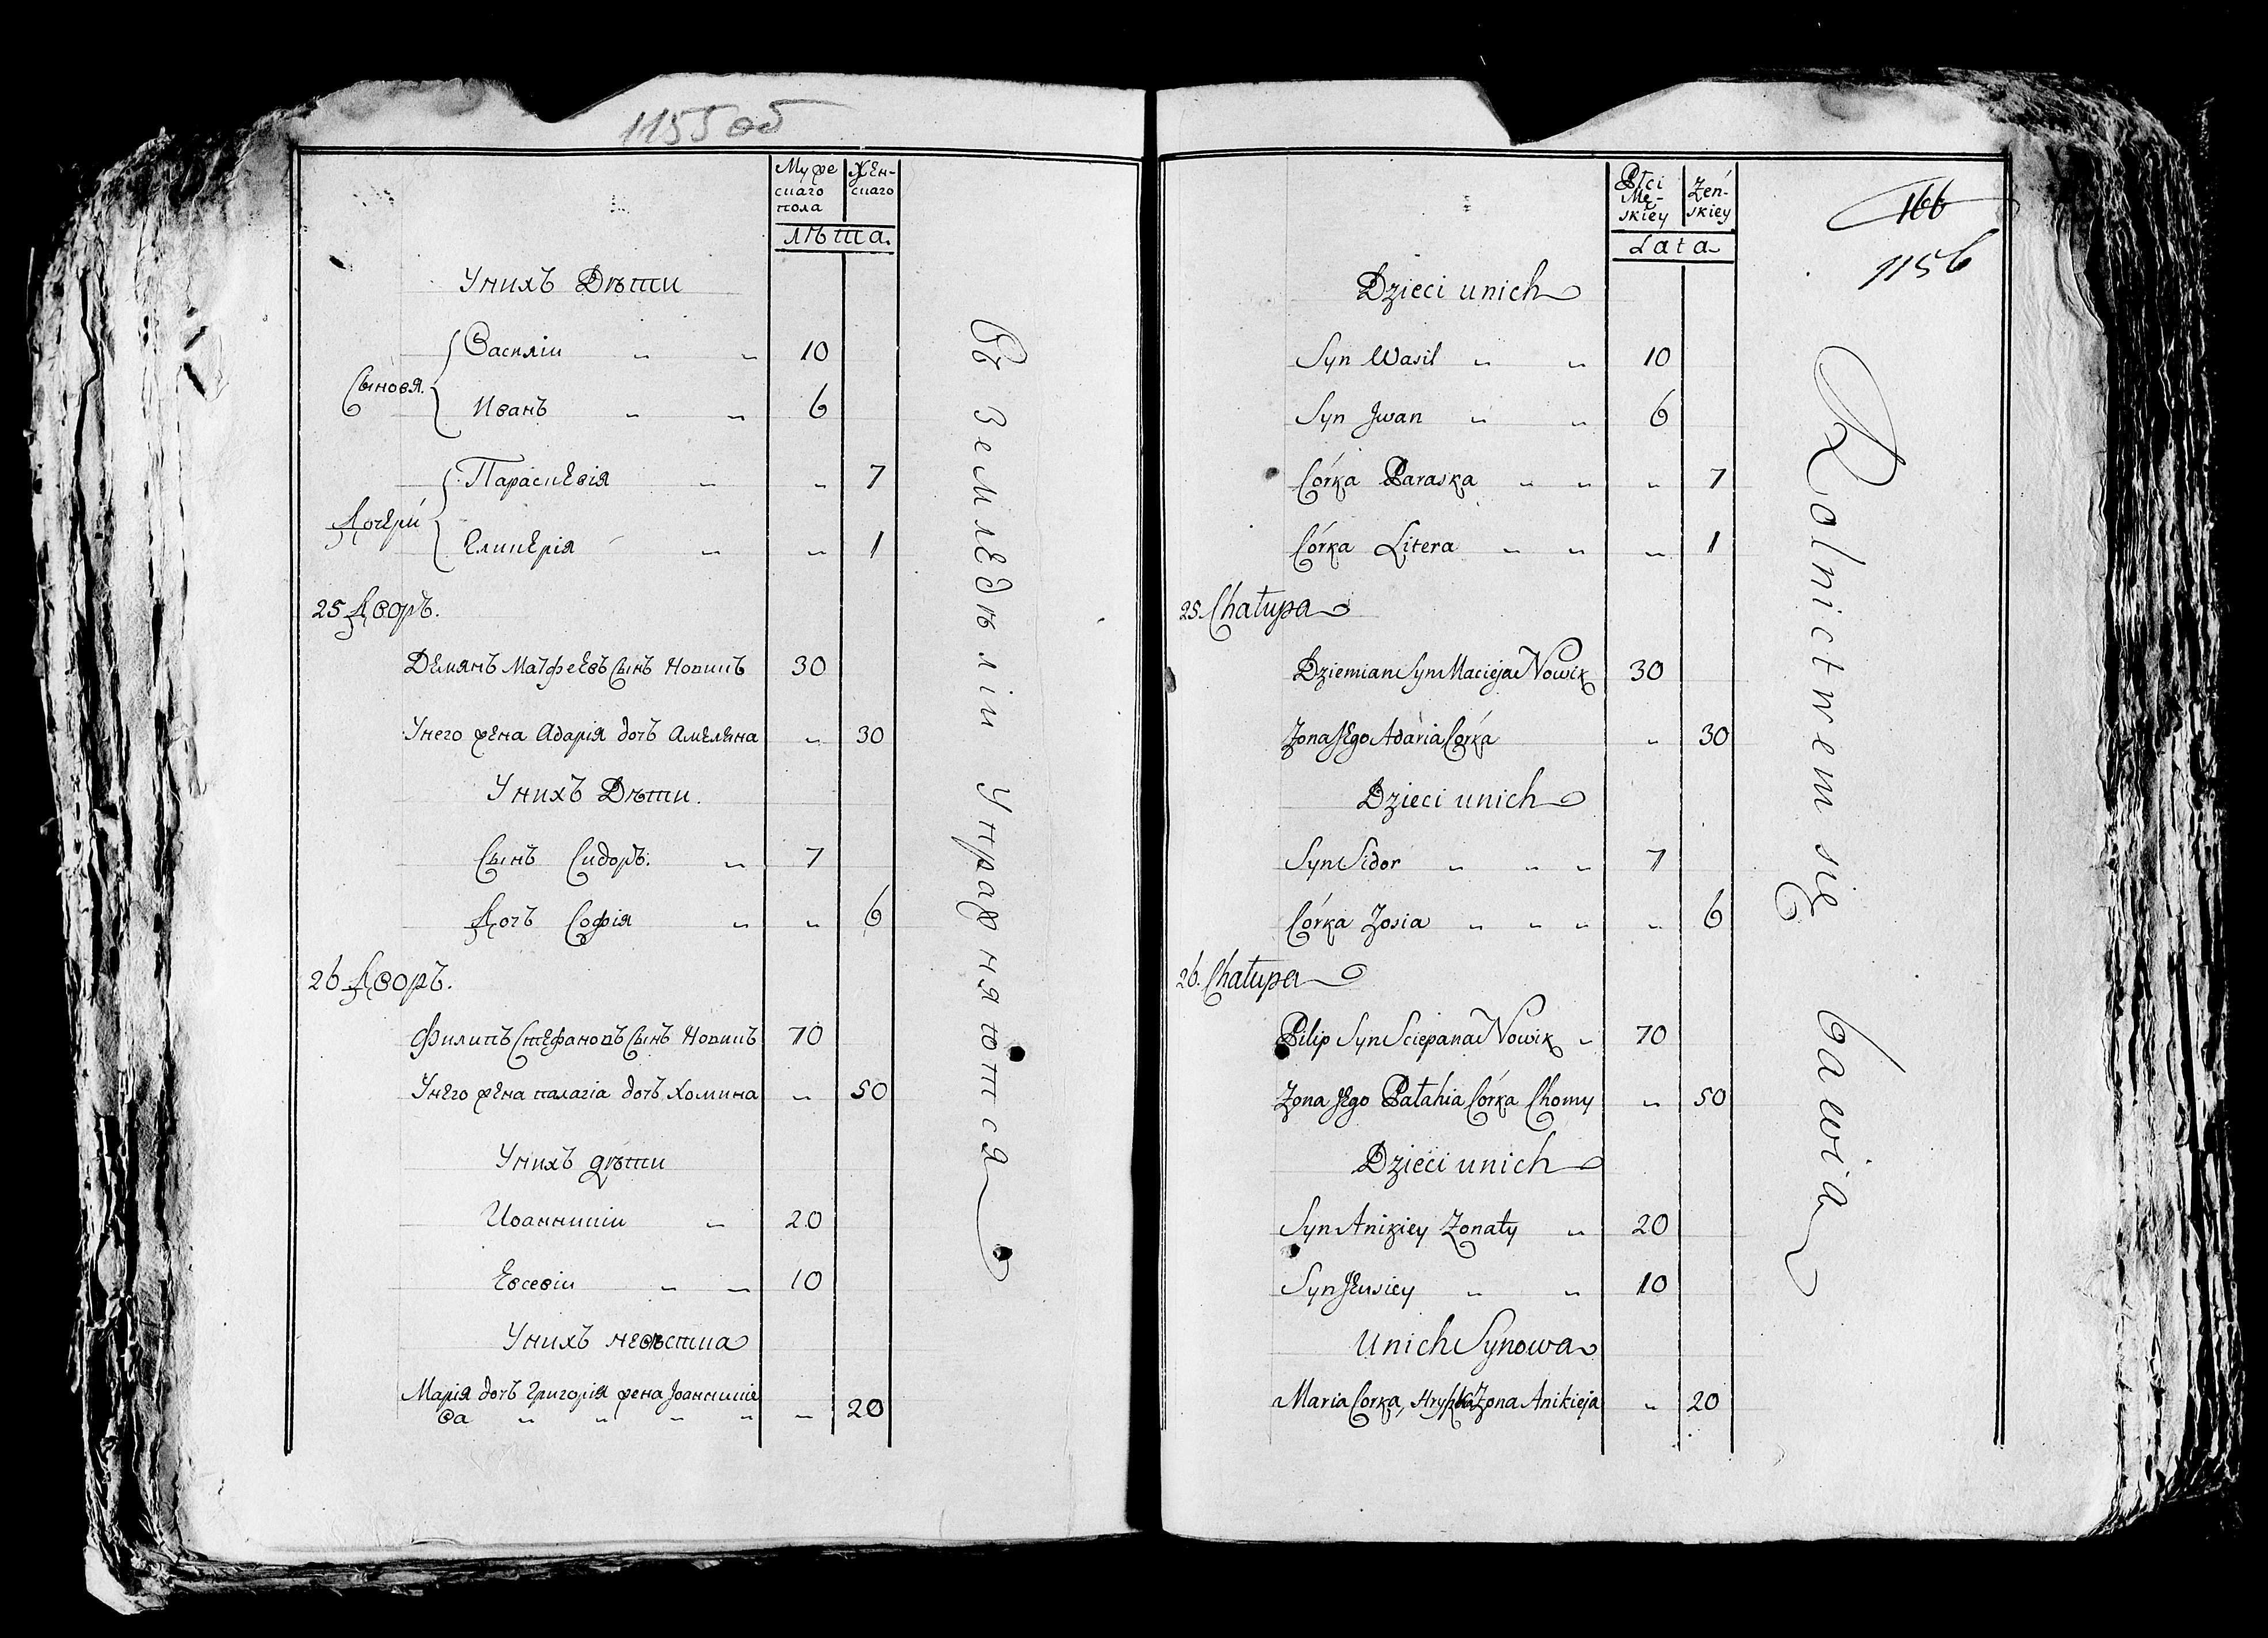 1155 об
Мужескаго пола
Женскаго
лѣта.
У нихъ Дѣти
Сыновя.
Василiи " " 10
Иванъ " " 6
Дочери
Параскевiя " " 7
Гликерiя " " 1
25 Дворъ.
Демянъ Матфеевъ Сынъ Новикъ 30
У него жена Адарiя дочь Амеляна " 30
У нихъ Дѣти.
Сынъ Сидоръ. " 7
Дочь Софiя " " 6
26 Дворъ.
Филипъ Стефановъ Сынъ Новикъ 70
У него жена палагiа дочь Хомина " 50
У нихъ дѣти
Иоанникiи " 20
Евсевiи " " 10
У нихъ невѣстка
Марiя дочь Григорiя жена Iоанникiе
ва " " " " " 20
Въ Земледѣлiи Упражняются
Płci Mę-
skiey
Żeń-
skiey
Lata
166
1156
Dzieci unich
Syn Wasil " " 10
Syn Jwan " " 6
Córka Paraska " " " 7
Córka Litera " " " 1
25. Chałupa
Dziemian Syn Macieja Nowik 30
Zona Jego Adaria Córka " 30
Dzieci unich
Syn Sidor " " " 7
Córka Zosia " " " " 6
26. Chałupa
Pilip Syn Sciepana Nowik " 70
Zona Jego Pałahia Córka Chomy " 50
Dzieci unich
Syn Anikiey Zonaty " 20
Syn Jeusiey " " 10
Unich Synowa
Maria Corka, Hryhora Zona Anikieja " 20
Rolnictwem się bawia